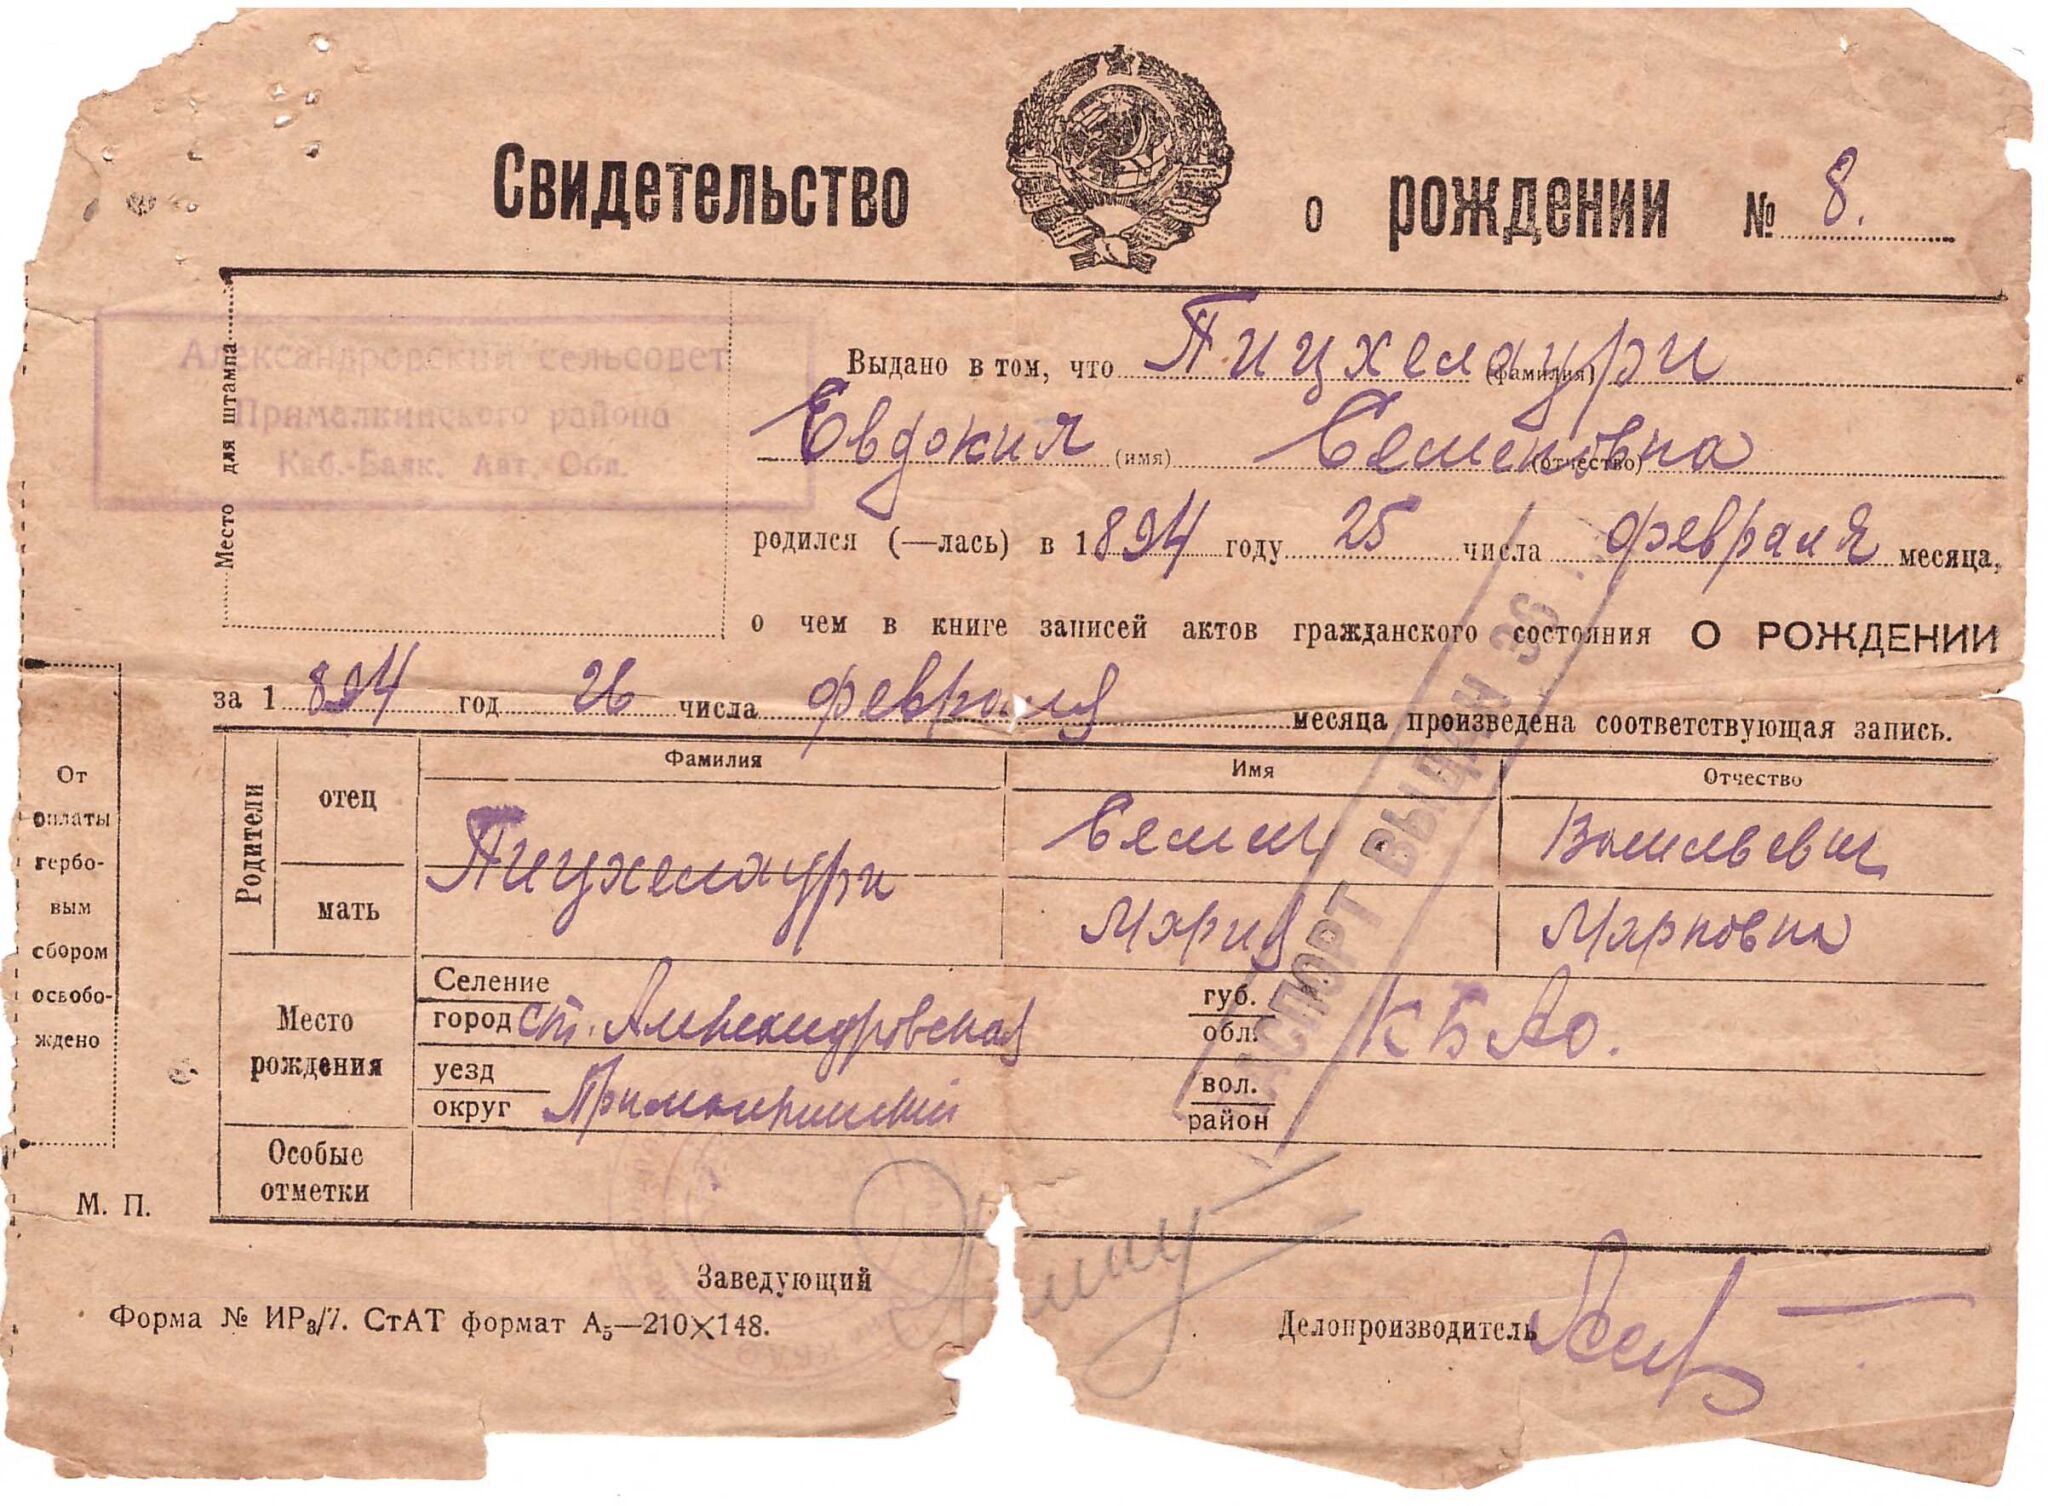 Свидетельство о рождении № 8.
Место для штампа
Александровский сельсовет
Прималкинского района
Каб.-Балк. Авт. Обл.
Выдано в том, что Пицхелаури
(фамилия)
Евдокия (имя) Семеновна (отчество)
родился (—лась) в 1894 году 25 числа февраля месяца,
о чем в книге записей актов гражданского состояния О РОЖДЕНИИ
за 1894 год 26 числа февраля месяца произведена соответствующая запись.
ПАСПОРТ ВЫДАН 36
Родители
Фамилия Имя Отчество
отец Пицхелаури Семен Васильевич
мать Мария Марковна
Место рождения
Селение
город ст. Александровская губ.
обл. КБАО.
уезд
округ Прималкинский вол.
район
Особые отметки
От оплаты гербовым сбором освобождено
М. П.
Заведующий
Форма № ИР₃/7. СтАТ формат А₅—210×148.
Делопроизводитель